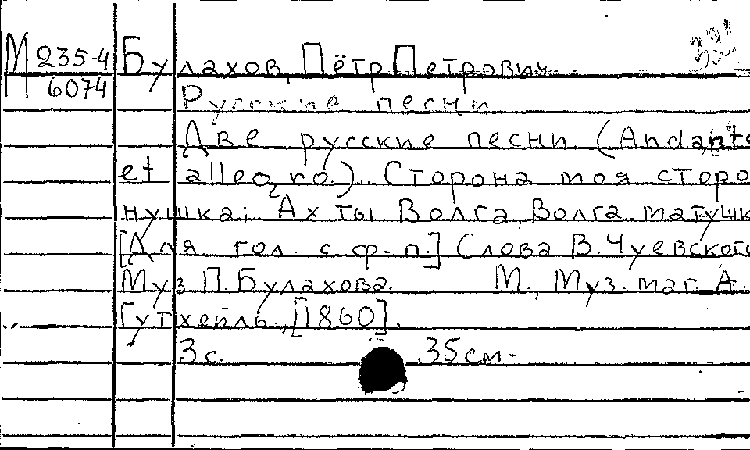 М 235-4
6074
Булахов, Пётр Петрович
Русские песни
Две русские песни (Andante
et allegro.) Сторона моя сторо
нушка; Ах ты Волга Волга матушк
[Для гол. с ф.-п.] Слова В. Чуевского
Муз П. Булахова. М., Муз. маг. А.
Гутхейль, [1860].
3 с. 35 см.